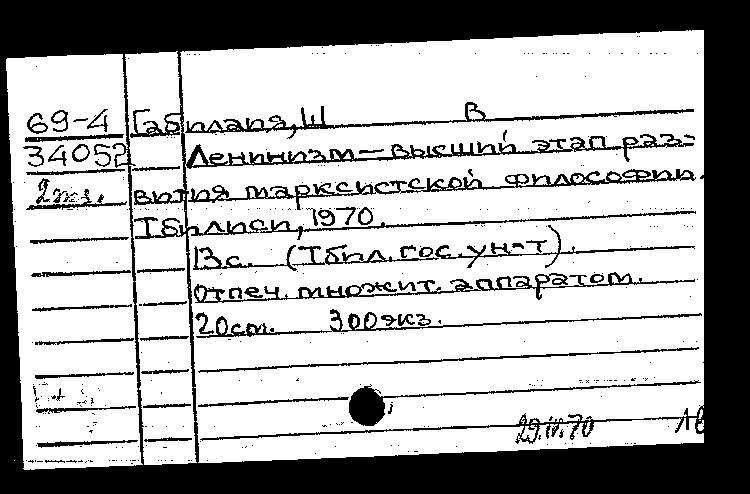 69-4 Габилая, Ш В
34052 Ленинизм — высший этап раз-
2 вития марксистской философии.
Тбилиси, 1970.
13с. (Тбил. гос. ун-т).
Отпеч. множит. аппаратом.
20см. 300экз.
70